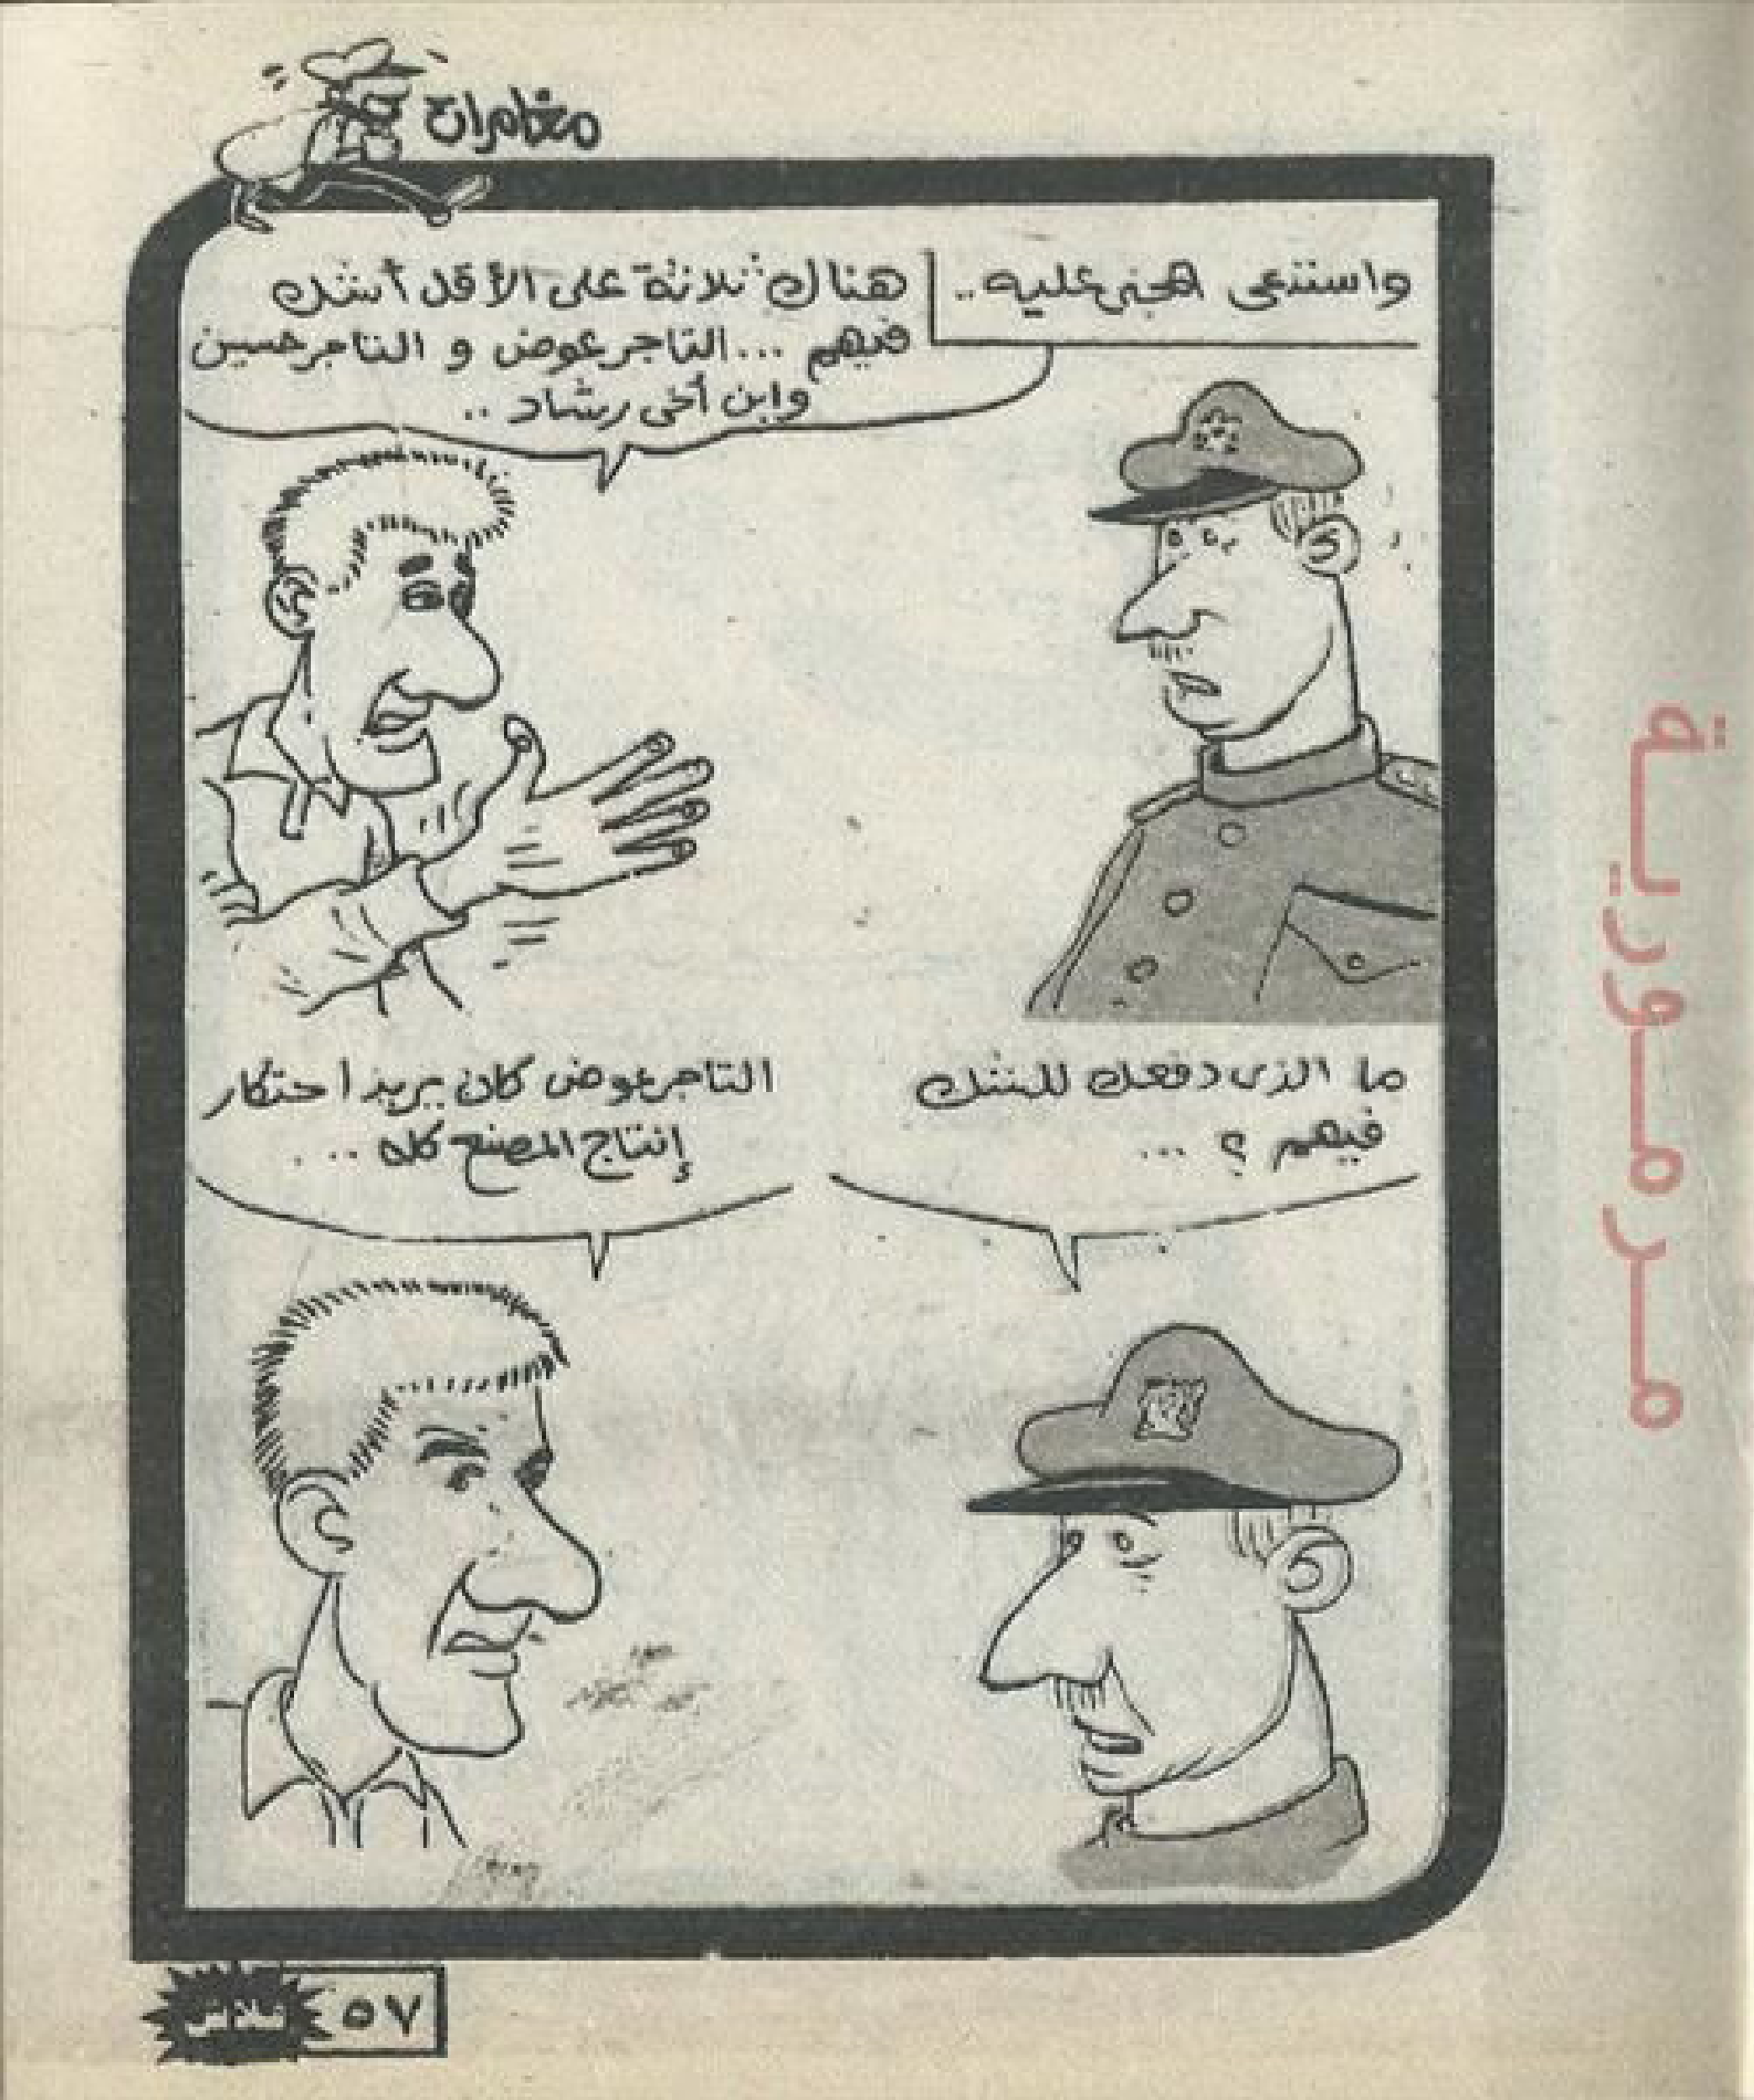 مغامرات
واستدعى المجنى عليه..
هناك ثلاثة على الأقل أشك
فيهم ... التاجر عوض و التاجر حسين
وابن أخى رشاد ..
ما الذى دفعك للشك
فيهم ؟ ...
التاجر عوض كان يريد احتكار
إنتاج المصنع كله ...
فلاش
٥٧
مرمورية